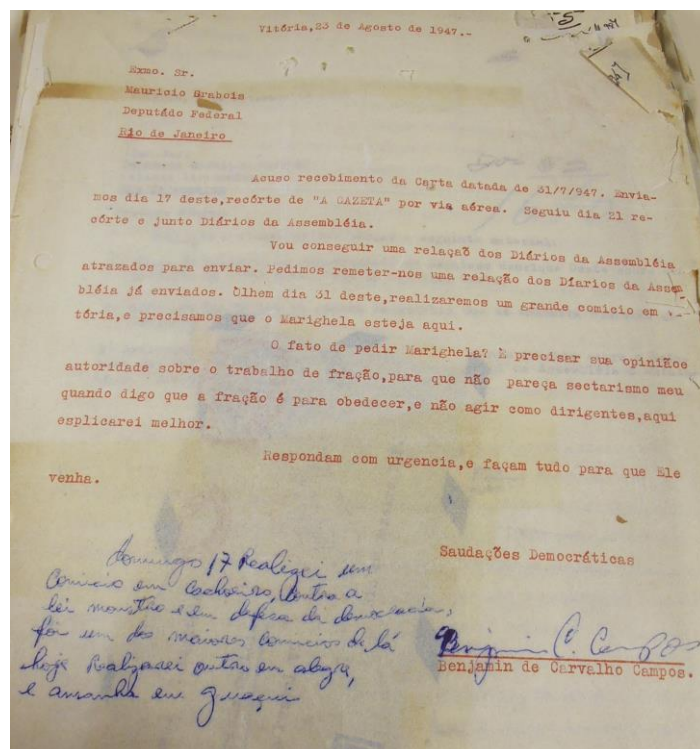 Vitória,23 de Agosto de 1947.-
Exmo. Sr.
Mauricio Grabois
Deputádo Federal
Rio de Janeiro
Acuso recebimento da Carta datada de 31/7/947. Envia-
mos dia 17 deste,recórte de "A GAZETA" por via aérea. Seguiu dia 21 re-
córte e junto Diários da Assembléia.
Vou conseguir uma relação dos Diários da Assembléia
atrazados para enviar. Pedimos remeter-nos uma relação dos Díarios da Assem
bléia já enviados. Olhem dia 31 deste,realizaremos um grande comicio em
tória,e precisamos que o Marighela esteja aqui.
O fato de pedir Marighela? É precisar sua opiniãoe
autoridade sobre o trabalho de fração,para que não pareça sectarismo meu
quando digo que a fração é para obedecer,e não agir como dirigentes,aqui
esplicarei melhor.
Respondam com urgencia,e façam tudo para que Ele
venha.
Saudações Democráticas
Domingo 17 Realizei um
Comicio em Cachoeiro, Contra a
lei monstro e em defesa da democracia,
foi um dos maiores Comicios de lá
hoje Realizarei outro em alegre,
e amanha em Guaçui
Benjamin C. Campos
Benjamin de Carvalho Campos.